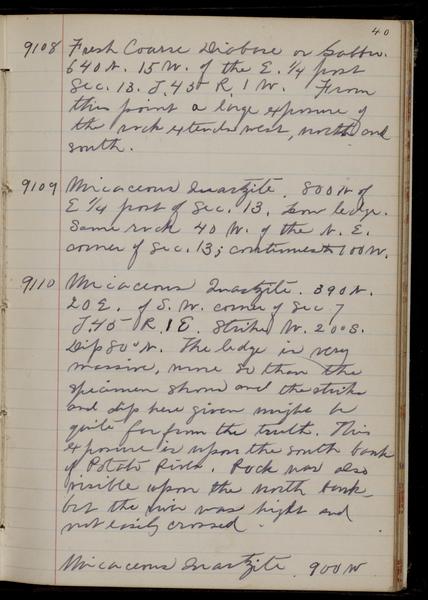 40
9108 Fresh Coarse Diabase or Gabbro.
640 N. 15 W. of the E. 1/4 post
Sec. 13. T. 45 R. 1 W. From
this point a large exposure of
the rock extends west, north and
south.
9109 Micaceous Quartzite. 800 N of
E 1/4 post of Sec. 13. Low ledge.
Same rock 40 W. of the N. E.
corner of Sec. 13; continues 100 W.
9110 Micaceous Quartzite. 390 N.
20 E. of S. W. corner of Sec 7
T. 45 R. 1 E. Strikes W. 20° S.
Dip 80° N. The ledge is very
massive, more so than the
specimen shows and the strike
and dip here given might be
quite far from the truth. This
exposure is upon the south bank
of Potato River. Rock was also
visible upon the north bank
but the river was high and
not easily crossed.
Micaceous Quartzite. 900 W